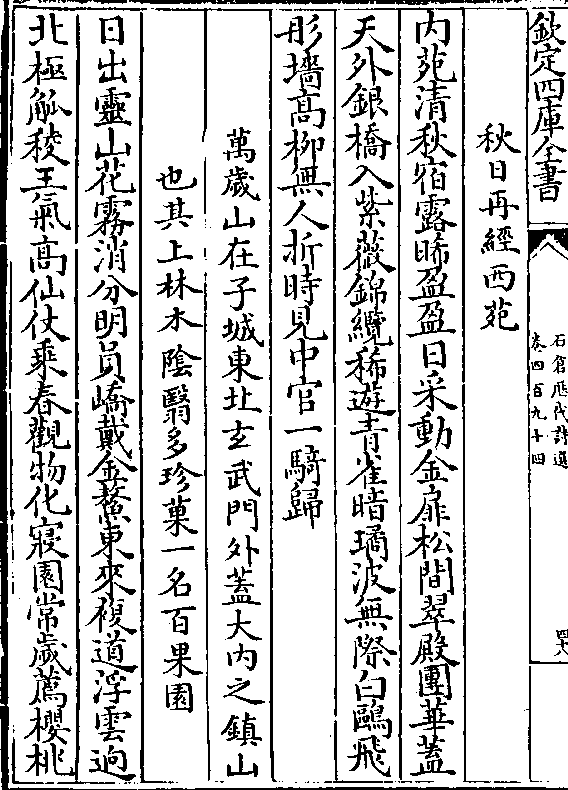 欽定四庫全書
石倉歷代詩選
卷四百九十四
秋日再經西苑
内苑清秋宿露晞盈盈日采動金扉松間翠殿團華蓋
天外銀橋入紫薇錦纜稀遊青雀暗璚波無際白鷗飛
彤墻高柳無人折時見中官一騎歸
萬歲山在子城東北玄武門外蓋大内之鎮山
也其上林木陰翳多珍菓一名百果園
日出靈山花霧消分明員嶠戴金鰲東來複道浮雲逈
北極觚稜王氣高仙仗乘春觀物化寢園常歲薦櫻桃